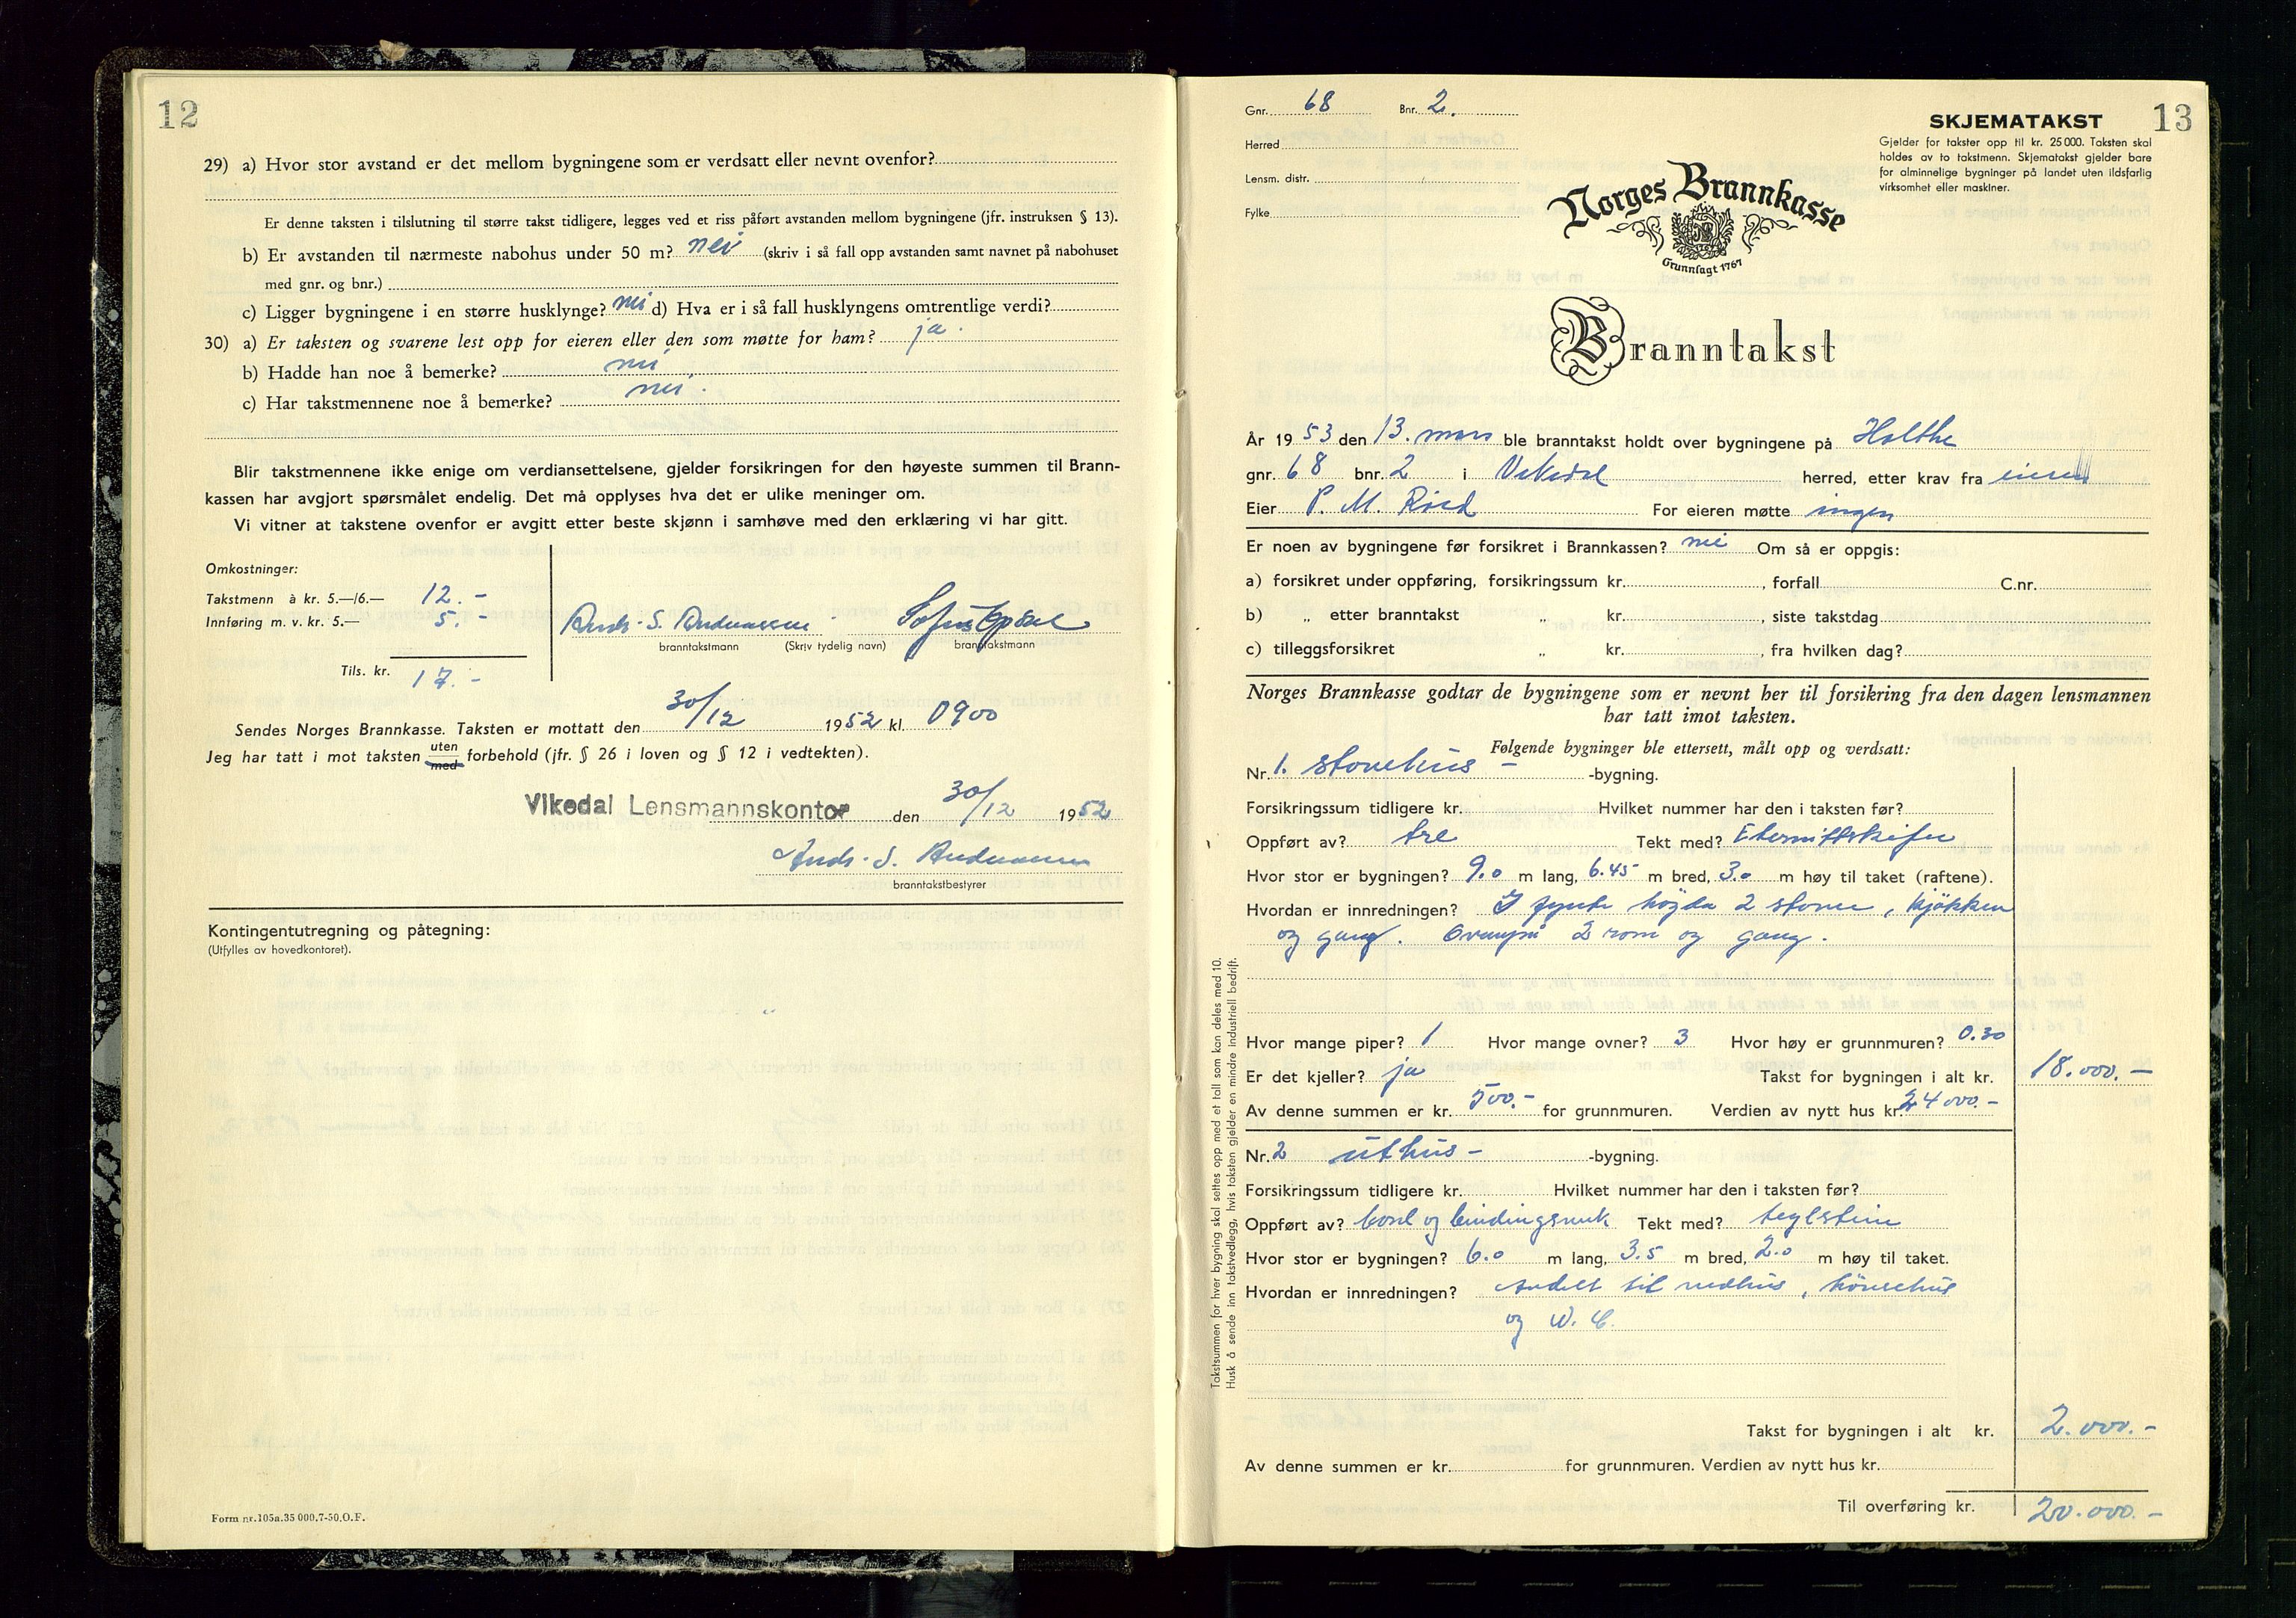 12
29) a) Hvor stor avstand er det mellom bygningene som er verdsatt eller nevnt ovenfor?
Er denne taksten i tilslutning til større takst tidligere, legges ved et riss påført avstanden mellom bygningene (jfr. instruksen § 13).
b) Er avstanden til nærmeste nabohus under 50 m? nei (skriv i så fall opp avstanden samt navnet på nabohuset
med gnr. og bnr.)
c) Ligger bygningene i en større husklynge? nei d) Hva er i så fall husklyngens omtrentlige verdi?
30) a) Er taksten og svarene lest opp for eieren eller den som møtte for ham? ja.
b) Hadde han noe å bemerke? nei
c) Har takstmennene noe å bemerke? nei.
Blir takstmennene ikke enige om verdiansettelsene, gjelder forsikringen for den høyeste summen til Brann-
kassen har avgjort spørsmålet endelig. Det må opplyses hva det er ulike meninger om.
Vi vitner at takstene ovenfor er avgitt etter beste skjønn i samhøve med den erklæring vi har gitt.
Omkostninger:
Takstmenn à kr. 5.—/6.— 12.-
Innføring m. v. kr. 5.— 5.-
Tils. kr. 17.-
Ands. S. Andreassen
branntakstmann (Skriv tydelig navn) branntakstmann
Sendes Norges Brannkasse. Taksten er mottatt den 30/12 1952 kl. 0900
Jeg har tatt i mot taksten uten med forbehold (jfr. § 26 i loven og § 12 i vedtekten).
Vikedal Lensmannskontor den 30/12 1952
Ands. S. Andreassen
branntakstbestyrer
Kontingentutregning og påtegning:
(Utfylles av hovedkontoret).
Form nr.105a.35 000.7-50.O.F.
Gnr. 68 Bnr. 2.
Herred
Lensm. distr.
Fylke
SKJEMATAKST 13
Gjelder for takster opp til kr. 25 000. Taksten skal
holdes av to takstmenn. Skjematakst gjelder bare
for alminnelige bygninger på landet uten ildsfarlig
virksomhet eller maskiner.
Norges Brannkasse
Grunnlagt 1767
Branntakst
År 1953 den 13. mars ble branntakst holdt over bygningene på Holthe
gnr. 68 bnr. 2 i Vikedal herred, etter krav fra eieren
Eier P. M. For eieren møtte ingen
Er noen av bygningene før forsikret i Brannkassen? nei Om så er oppgis:
a) forsikret under oppføring, forsikringssum kr. , forfall C.nr.
b) „ etter branntakst „ kr. , siste takstdag
c) tilleggsforsikret „ kr. , fra hvilken dag?
Norges Brannkasse godtar de bygningene som er nevnt her til forsikring fra den dagen lensmannen
har tatt imot taksten.
Følgende bygninger ble ettersett, målt opp og verdsatt:
Nr. 1. stovehus - -bygning.
Forsikringssum tidligere kr. Hvilket nummer har den i taksten før?
Oppført av? tre Tekt med? Eternittskifer
Hvor stor er bygningen? 9.0 m lang, 6.45 m bred, 3.0 m høy til taket (raftene).
Hvordan er innredningen? I fyrste høgda 2 stover, kjøkken
og gang. Ovanpå 2 rom og gang.
Hvor mange piper? 1 Hvor mange ovner? 3 Hvor høy er grunnmuren? 0.30
Er det kjeller? ja Takst for bygningen i alt kr. 18.000.—
Av denne summen er kr. 500.- for grunnmuren. Verdien av nytt hus kr. 24000.-
Nr. 2 uthus - -bygning.
Forsikringssum tidligere kr. Hvilket nummer har den i taksten før?
Oppført av? bord og bindingsverk Tekt med? teglstein
Hvor stor er bygningen? 6.0 m lang, 3.5 m bred, 2.0 m høy til taket.
Hvordan er innredningen? Avdelt til vedhus, hönsehus
og W. C.
Takst for bygningen i alt kr. 2.000.-
Av denne summen er kr. for grunnmuren. Verdien av nytt hus kr.
Til overføring kr. 20.000.-
Takstsummen for hver bygning skal settes opp med et tall som kan deles med 10.
Husk å sende inn takstvedlegg, hvis taksten gjelder en mindre industriell bedrift.